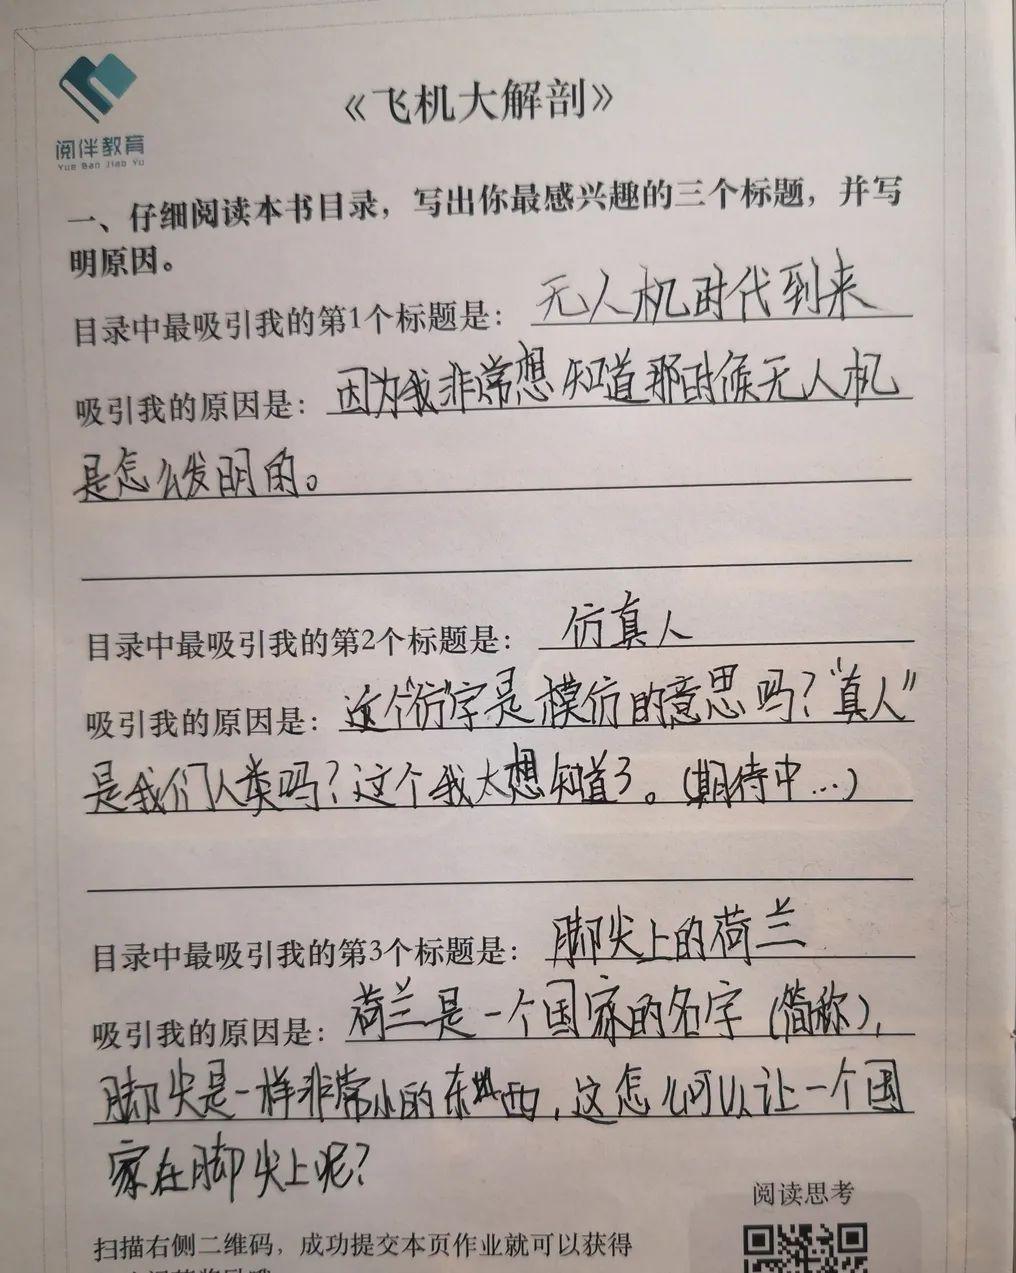 阅伴教育
Yue Ban Jiao Yu
《飞机大解剖》
一、仔细阅读本书目录，写出你最感兴趣的三个标题，并写
明原因。
目录中最吸引我的第1个标题是：无人机时代到来
吸引我的原因是：因为我非常想知道那时候无人机
是怎么发明的。
目录中最吸引我的第2个标题是：仿真人
吸引我的原因是：这个“仿”字是模仿的意思吗？“真人”
是我们人类吗？这个我太想知道了。（期待中…）
目录中最吸引我的第3个标题是：脚尖上的荷兰
吸引我的原因是：荷兰是一个国家的名字（简称），
脚尖是一样非常小的东西，这怎么可以让一个国
家在脚尖上呢？
阅读思考
扫描右侧二维码，成功提交本页作业就可以获得